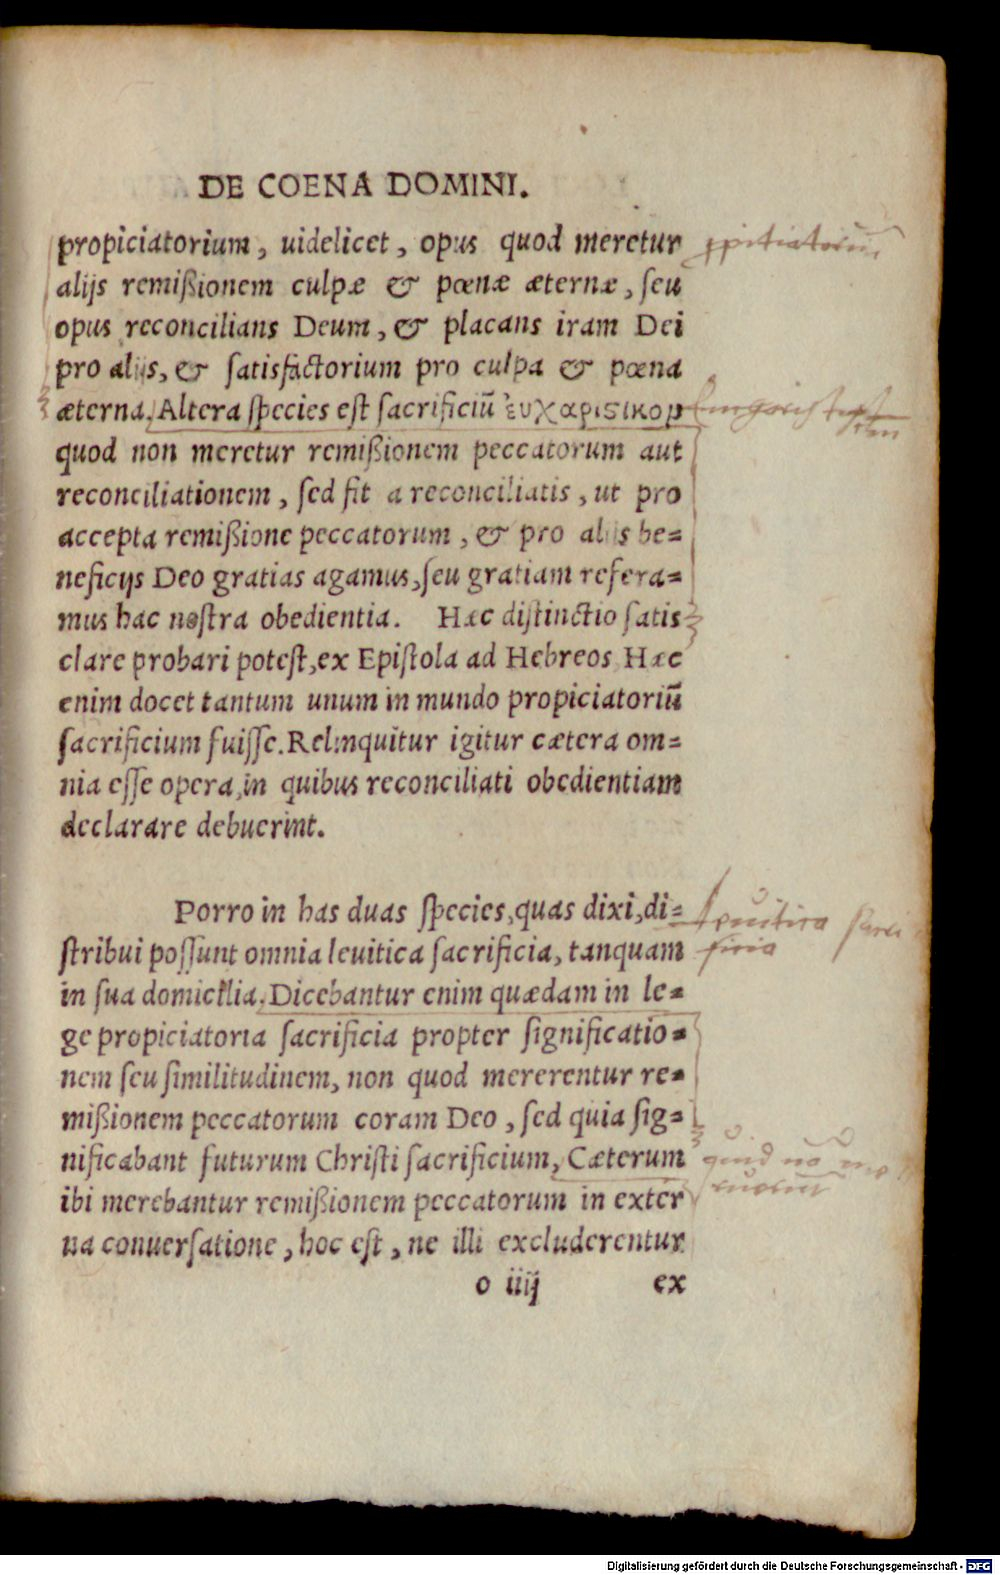 DE COENA DOMINI.
propiciatorium, uidelicet, opus quod meretur
alijs remißionem culpæ & pœnæ æternæ, seu
opus reconcilians Deum, & placans iram Dei
pro alijs, & satisfactorium pro culpa & pœna
æterna. Altera species est sacrificiū ἐυχαρισικομ
quod non meretur remißionem peccatorum aut
reconciliationem, sed fit a reconciliatis, ut pro
accepta remißione peccatorum, & pro alijs be=
neficijs Deo gratias agamus, seu gratiam refera=
mus hac nostra obedientia. Hæc distinctio satis
clare probari potest, ex Epistola ad Hebreos. Hæc
enim docet tantum unum in mundo propiciatoriū
sacrificium fuisse. Relinquitur igitur cætera om=
nia esse opera, in quibus reconciliati obedientiam
declarare debuerint.
Porro in has duas species, quas dixi, di=
stribui possunt omnia leuitica sacrificia, tanquam
in sua domicilia. Dicebantur enim quædam in le=
ge propiciatoria sacrificia propter significatio=
nem seu similitudinem, non quod mererentur re=
mißionem peccatorum coram Deo, sed quia sig=
nificabant futurum Christi sacrificium, Cæterum
ibi merebantur remißionem peccatorum in exter
na conuersatione, hoc est, ne illi excluderentur
o iiij ex
leuitica
ficia
Digitalisierung gefördert durch die Deutsche Forschungsgemeinschaft - DFG